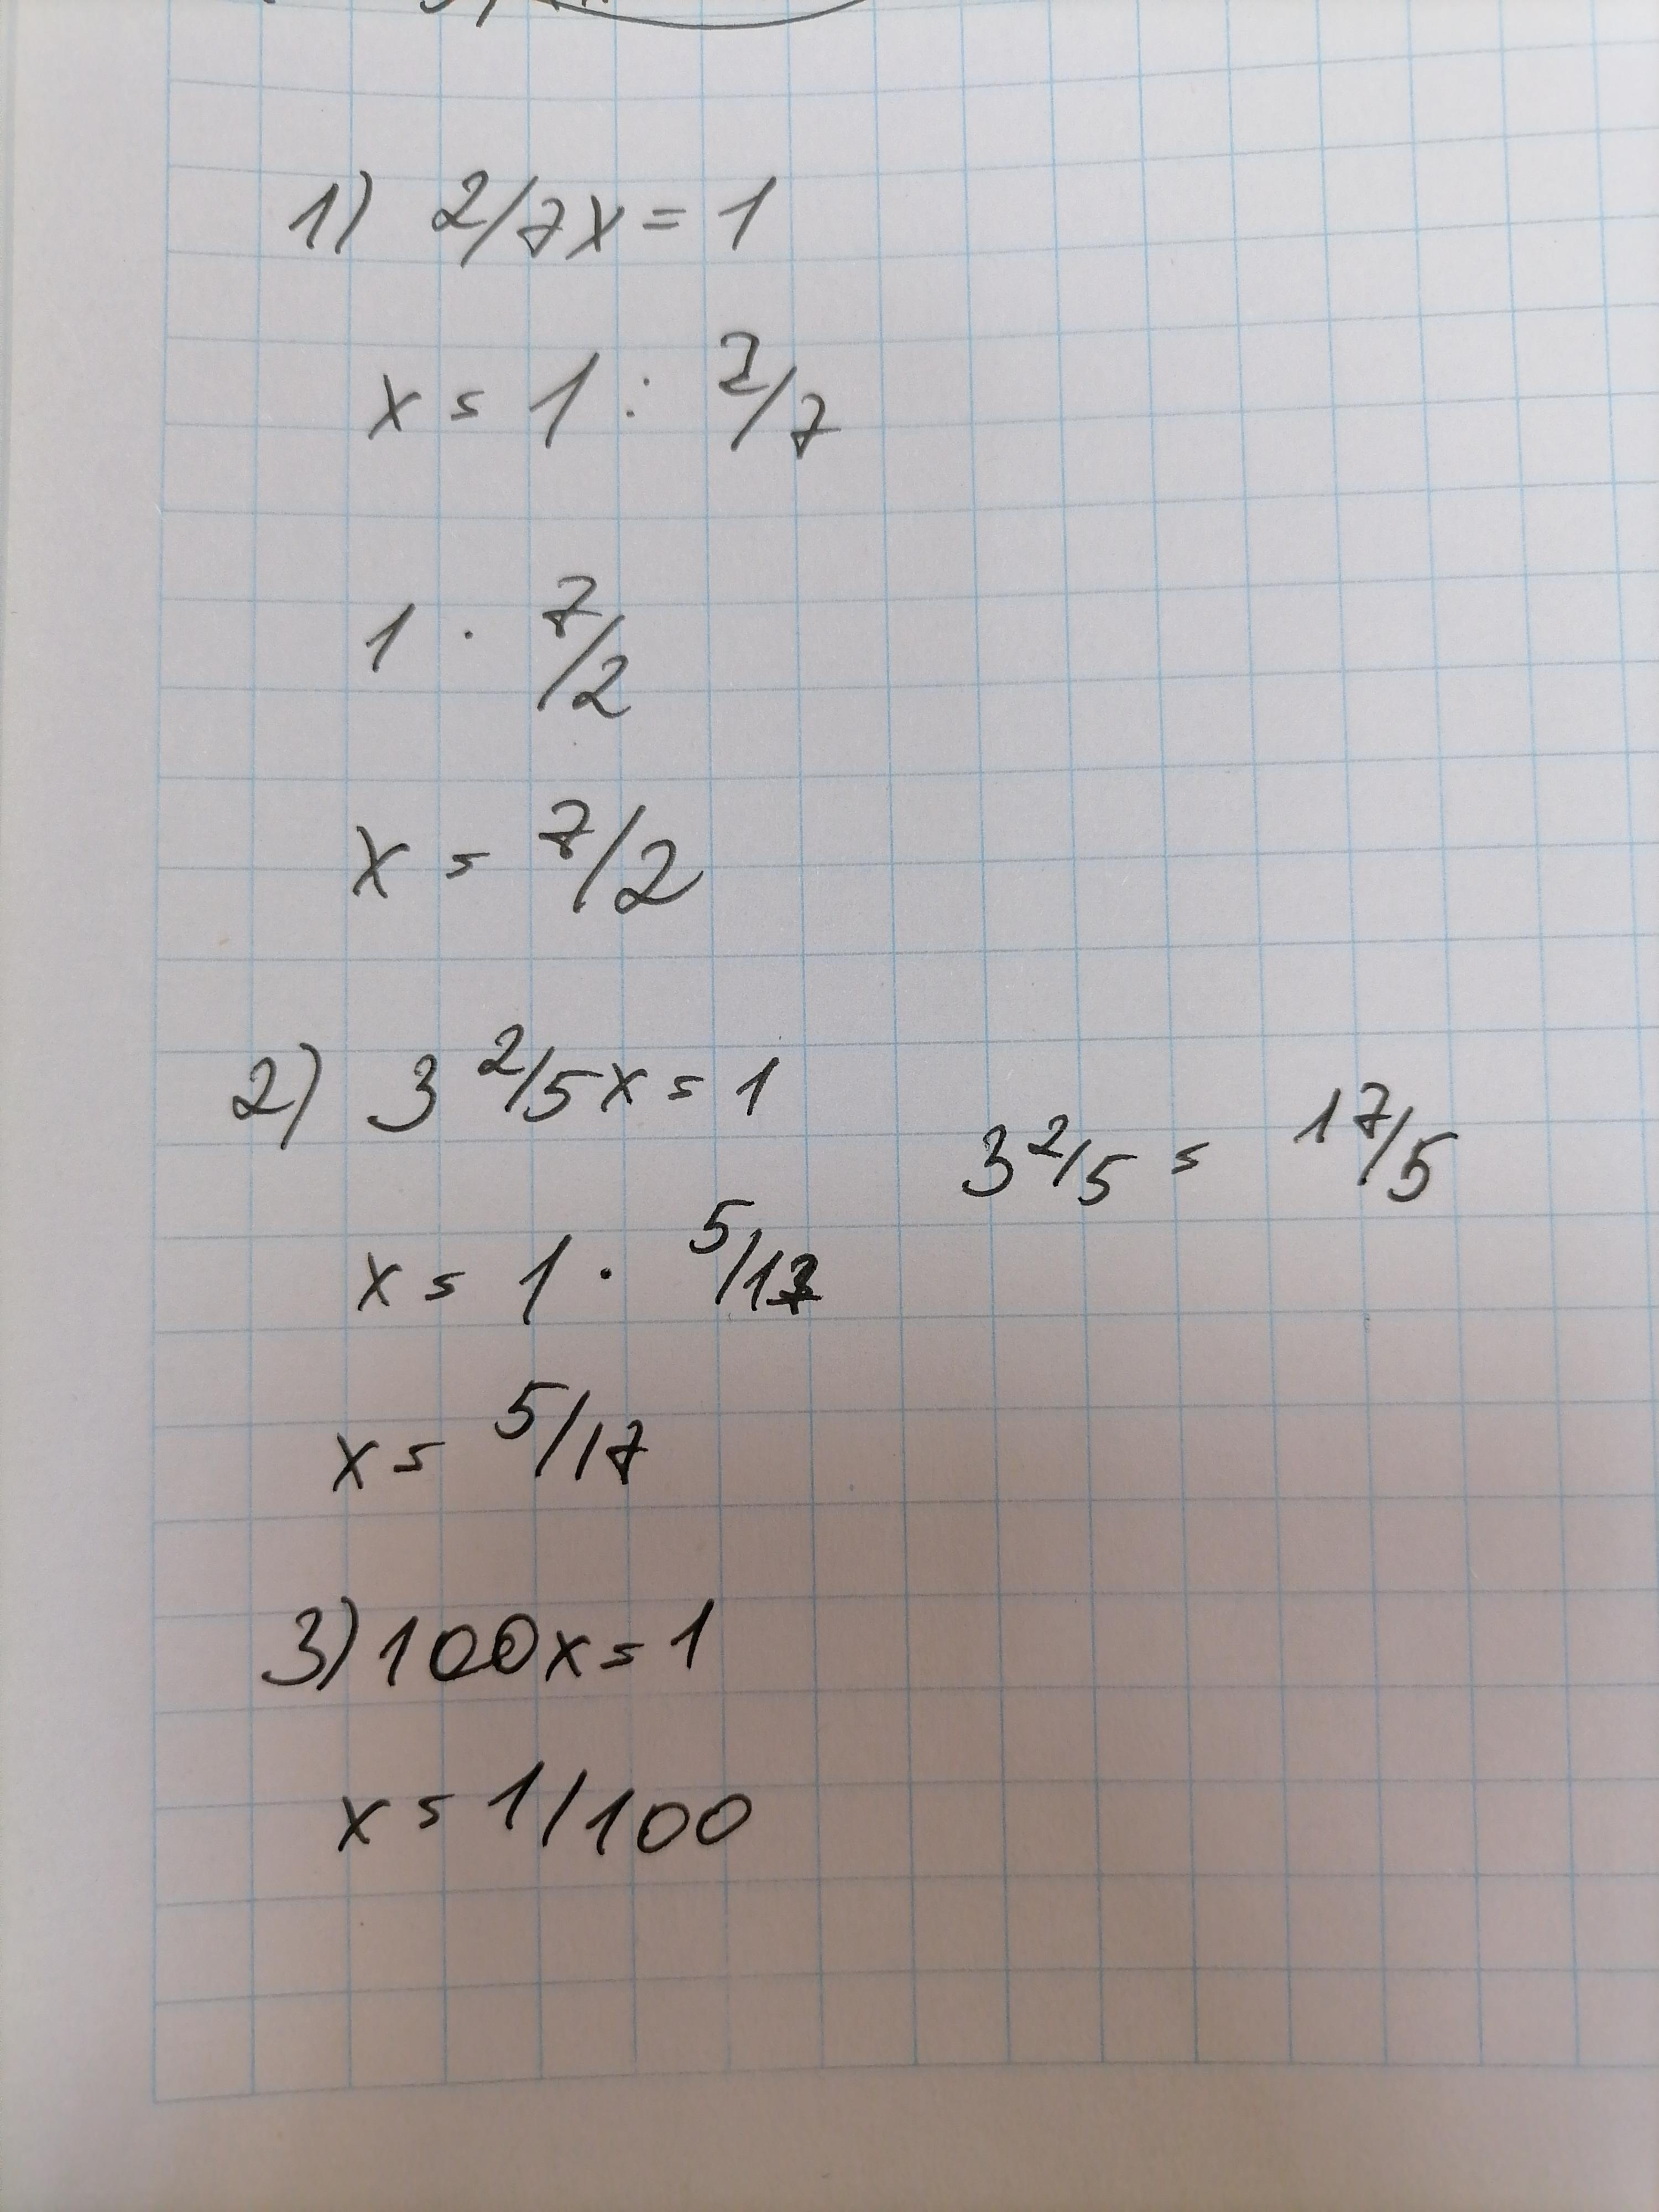 1) 2/7x = 1
x = 1 : 2/7
1 · 7/2
x = 7/2
2) 3 2/5x = 1
3 2/5 = 17/5
x = 1 · 5/17
x = 5/17
3) 100x = 1
x = 1/100